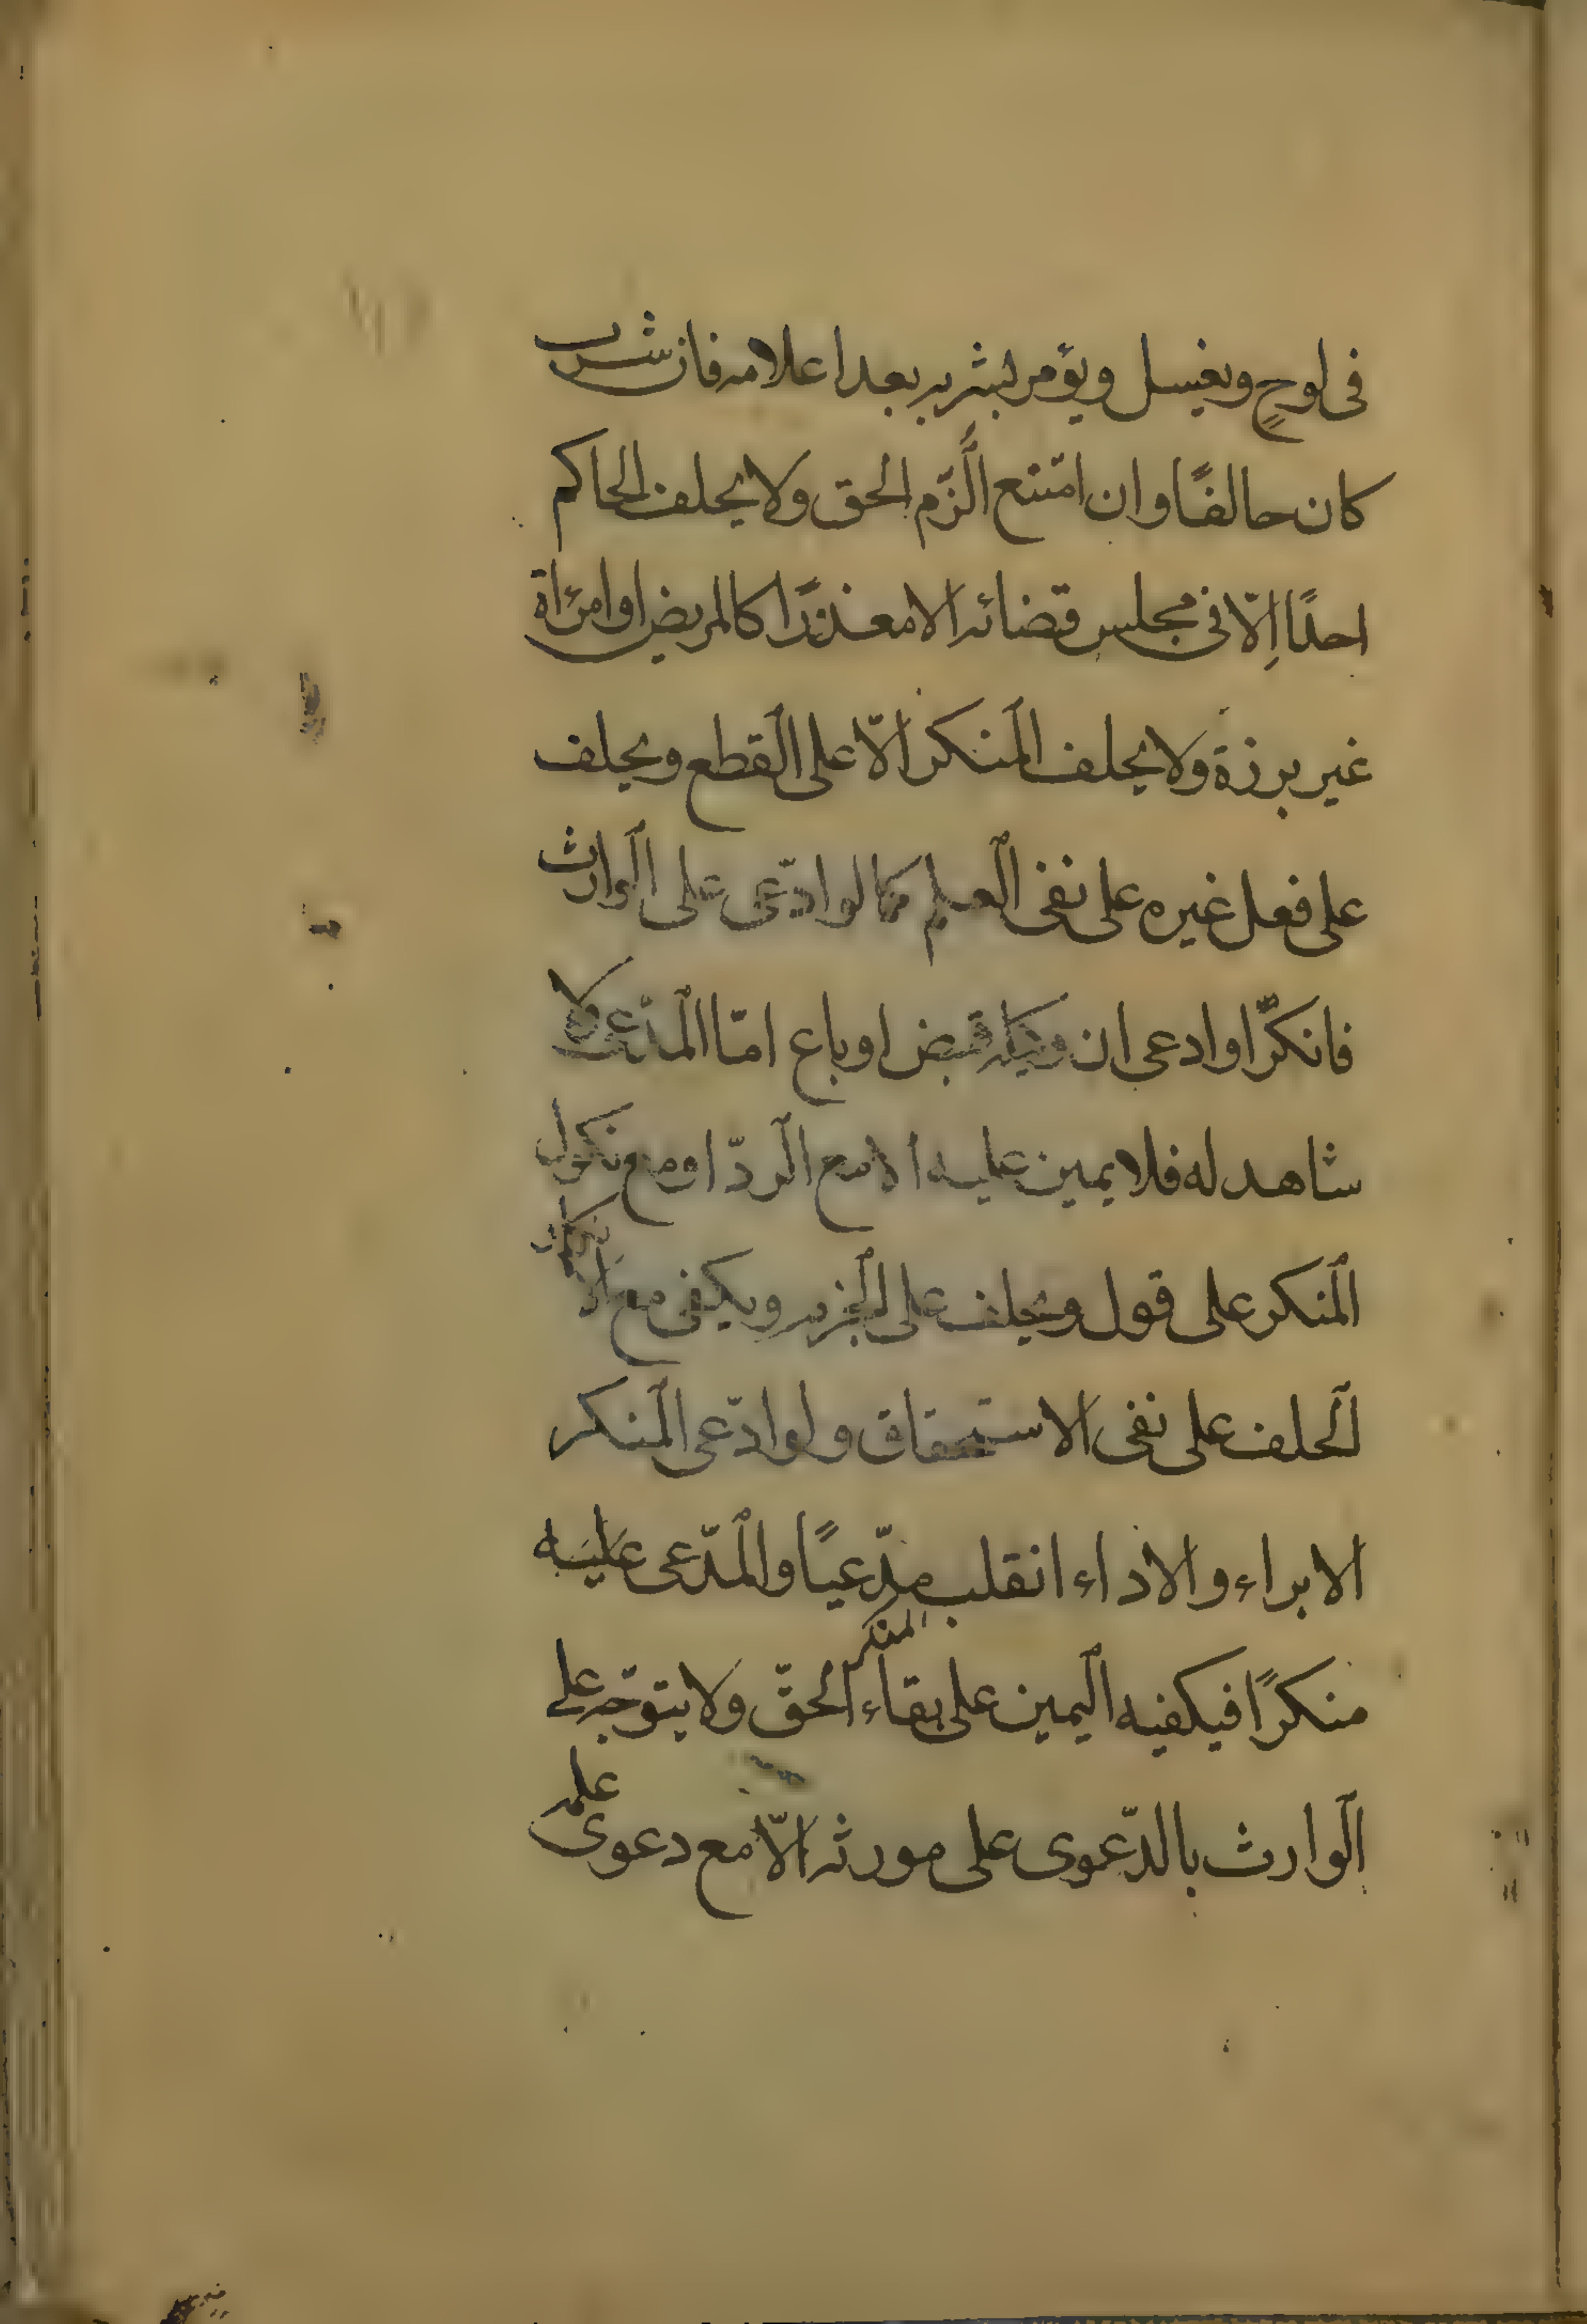 فى لوحٍ ويغسل ويؤمر بشربه بعد اعلامه فان شرب
كان حالفًا وان امتنع اُلزم الحق ولا يحلف الحاكم
احدًا اِلّا فى مجلس قضائه الا معذورًا كالمريض او امرأة
غير برزة ولا يحلف المنكر الّا على القطع ويحلف
على فعل غيره على نفى العلم كما لو ادّعى على الوارث
فانكر او ادعى ان وكيله قبض او باع امّا المدّعى ولا
شاهد له فلا يمين عليه الا مع الردّ او مع نكول
المنكر على قول ويحلف على الجزم ويكفى مع الانكار
الحلف على نفى الاستحقاق ولو ادّعى المنكر
الابراء والاداء انقلب مدّعيًا والمدّعى عليه
المنكر
منكرًا فيكفيه اليمين على بقاء الحقّ ولا يتوجّه على
الوارث بالدّعوى على مورثه الّا مع دعوى علمه